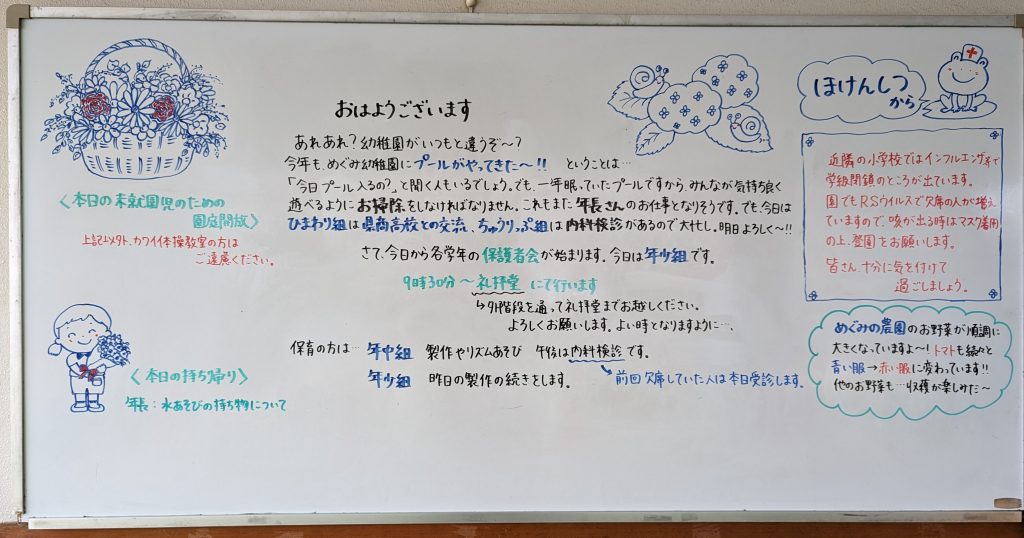 おはようございます
あれあれ?幼稚園がいつもと違うぞ〜?
今年も、めぐみ幼稚園にプールがやってきた〜!! ということは…
「今日プール入るの?」と聞く人もいるでしょう。でも、一年眠っていたプールですから、みんなが気持ち良く
遊べるようにお掃除をしなければなりません。これもまた年長さんのお仕事となりそうです。でも、今日は
ひまわり組は県商高校との交流、ちゅうりっぷ組は内科検診があるので大忙し。明日よろしく〜!!
さて、今日から各学年の保護者会が始まります。今日は年少組です。
9時30分〜礼拝堂にて行います
↳外階段を通って礼拝堂までお越しください。
よろしくお願いします。よい時となりますように…、
保育の方は… 年中組 製作やリズムあそび 午後は内科検診です。
年少組 昨日の製作の続きをします。
前回欠席していた人は本日受診します。
〈本日の未就園児のための
園庭開放〉
上記以外、カワイ体操教室の方は
ご遠慮ください。
〈本日の持ち帰り〉
年長:水あそびの持ち物について
ほけんしつ
から
近隣の小学校ではインフルエンザ等で
学級閉鎖のところが出ています。
園でもRSウイルスで欠席の人が増え
ていますので、咳が出る時はマスク着用
の上、登園をお願いします。
皆さん、十分に気を付けて
過ごしましょう。
めぐみの農園のお野菜が順調に
大きくなっていますよ〜!トマトも続々と
青い服→赤い服に変わっています!!
他のお野菜も…収穫が楽しみだ〜